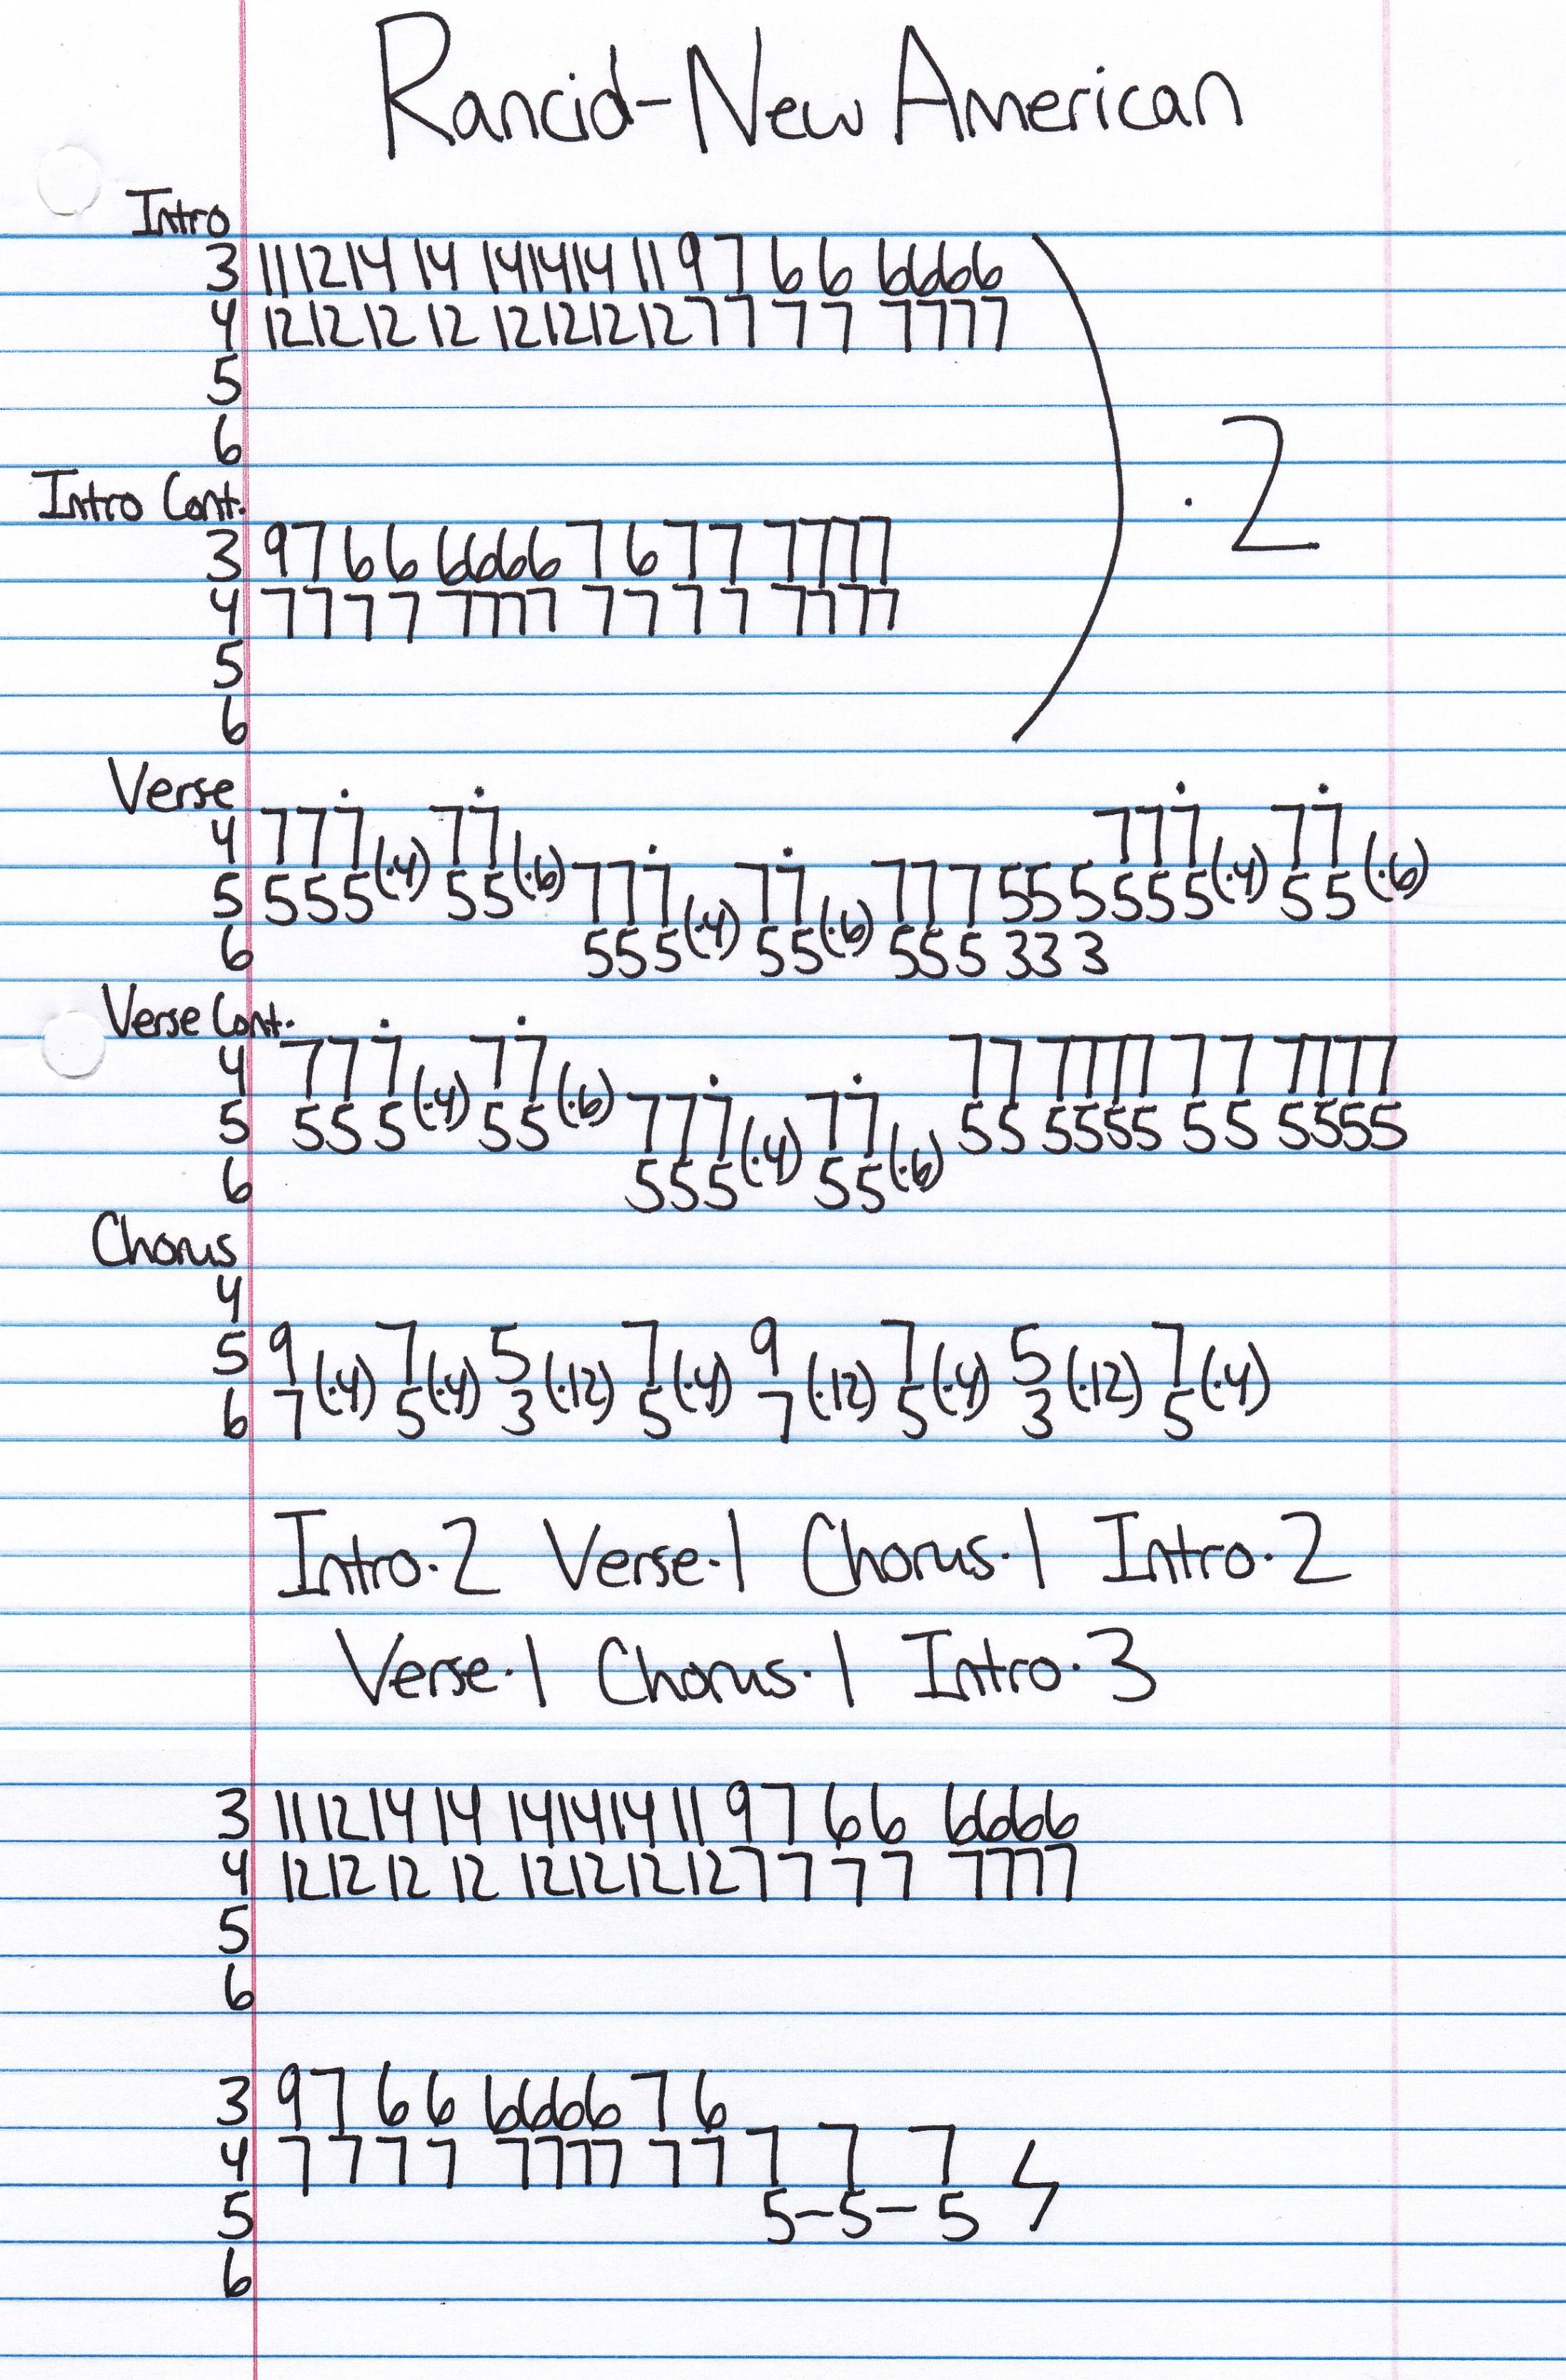 Rancid-New American
Intro
3 11 12 14 14 14 14 14 11 9 7 6 6 6 6 6 6
4 12 12 12 12 12 12 12 12 7 7 7 7 7 7 7 7
5
6
· 2
Intro Cont.
3 9 7 6 6 6 6 6 6 7 6 7 7 7 7 7 7
4 7 7 7 7 7 7 7 7 7 7 7 7 7 7 7 7
5
6
Verse
4 7 7 7̇ (·4) 7 7̇ (·6) 7 7 7̇ (·4) 7 7̇ (·6)
5 5 5 5 5 5 7 7 7̇ (·4) 7 7̇ (·6) 7 7 7 5 5 5 5 5 5 5 5
6 5 5 5 5 5 5 5 5 3 3 3
Verse Cont.
4 7 7 7̇ (·4) 7 7̇ (·6) 7 7 7 7 7 7 7 7 7 7 7 7
5 5 5 5 5 5 7 7 7̇ (·4) 7 7̇ (·6) 5 5 5 5 5 5 5 5 5 5 5 5
6 5 5 5 5 5
Chorus
4
5 9 (·4) 7 (·4) 5 (·12) 7 (·4) 9 (·12) 7 (·4) 5 (·12) 7 (·4)
6 7 5 3 5 7 5 3 5
Intro·2 Verse·1 Chorus·1 Intro·2
Verse·1 Chorus·1 Intro·3
3 11 12 14 14 14 14 14 11 9 7 6 6 6 6 6 6
4 12 12 12 12 12 12 12 12 7 7 7 7 7 7 7 7
5
6
3 9 7 6 6 6 6 6 6 7 6
4 7 7 7 7 7 7 7 7 7 7 7 7 7
5 5-5-5
6